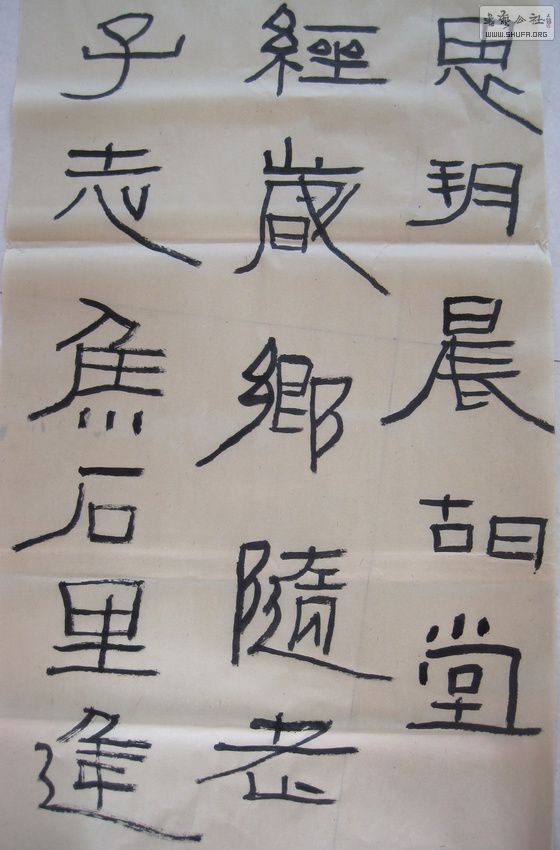 思玥晨胡堂
經歲鄉隨老
子志焦石里進
書法公社
WWW.SHUFA.ORG